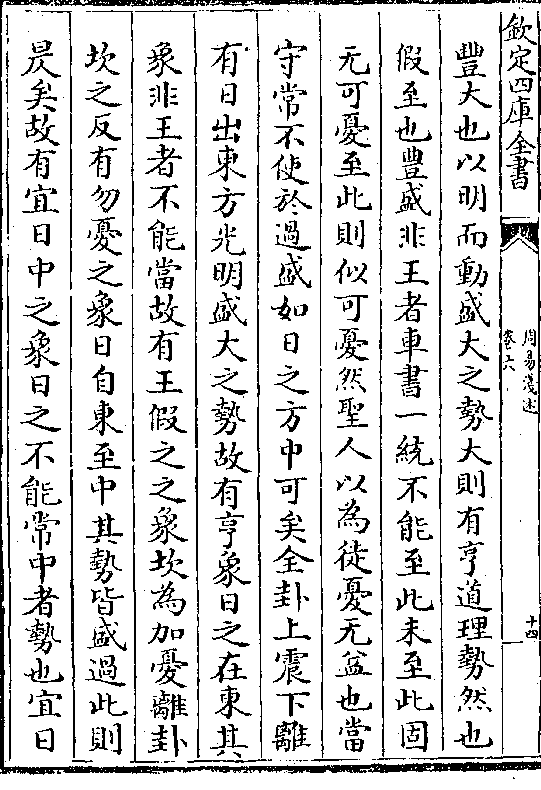 欽定四庫全書
周易淺述
卷六
十四
豐大也以明而動盛大之勢大則有亨道理勢然也
假至也豊盛非王者車書一統不能至此未至此固
无可憂至此則似可憂然聖人以為徒憂无益也當
守常不使於過盛如日之方中可矣全卦上震下離
有日出東方光明盛大之勢故有亨象日之在東其
象非王者不能當故有王假之之象坎為加憂離卦
坎之反有勿憂之象日自東至中其勢皆盛過此則
昃矣故有宜日中之象日之不能常中者勢也宜日